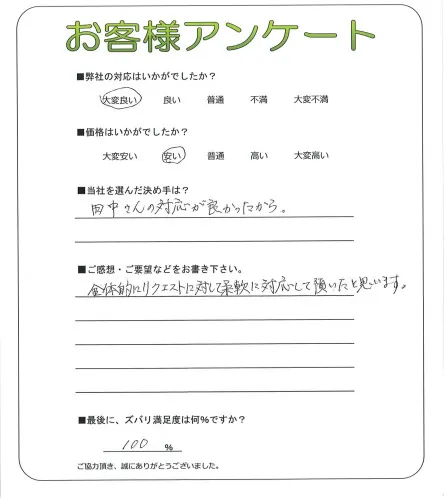 お客様アンケート
■弊社の対応はいかがでしたか?
大変良い 良い 普通 不満 大変不満
■価格はいかがでしたか?
大変安い 安い 普通 高い 大変高い
■当社を選んだ決め手は?
田中さんの対応が良かったから。
■ご感想・ご要望などをお書き下さい。
全体的にリクエストに対して柔軟に対応して頂いたと思います。
■最後に、ズバリ満足度は何%ですか?
100 %
ご協力頂き、誠にありがとうございました。